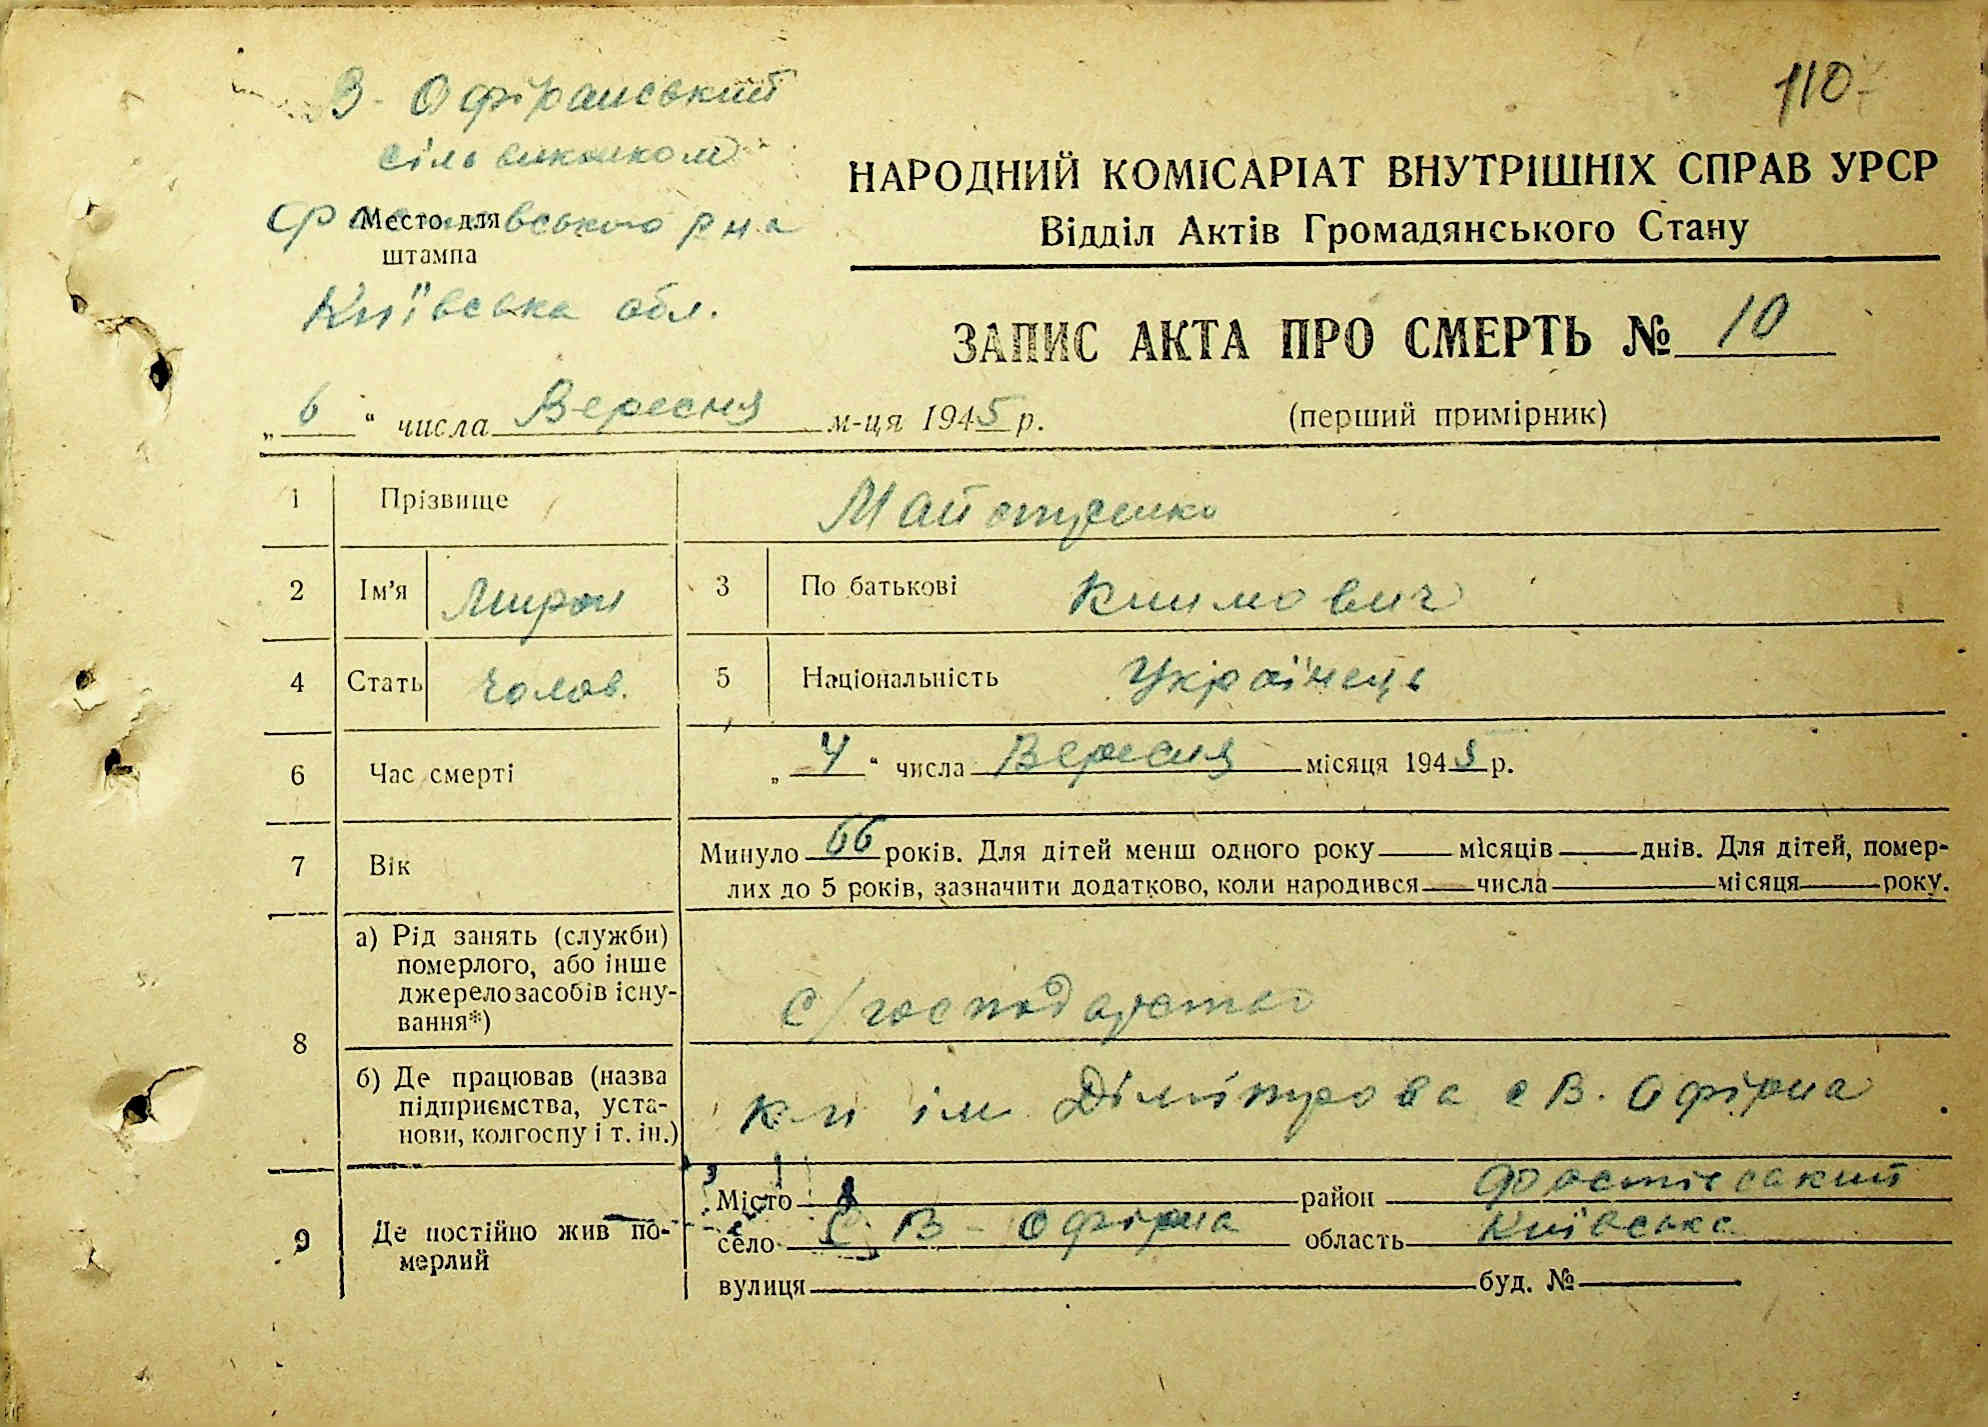 В-Офірнянський
сільвиконком
Фастівського р-на
Место для
штампа
Київська обл.
110
НАРОДНИЙ КОМІСАРІАТ ВНУТРІШНІХ СПРАВ УРСР
Відділ Актів Громадянського Стану
ЗАПИС АКТА ПРО СМЕРТЬ № 10
„ 6 “ числа Вересня м-ця 1945 р.
(перший примірник)
1 Прізвище Майстренко
2 Ім’я Мирон 3 По батькові Климович
4 Стать Чолов. 5 Національність Українець
6 Час смерті „ 4 “ числа Вересня місяця 1945 р.
7 Вік Минуло 66 років. Для дітей менш одного року місяців днів. Для дітей, помер-
лих до 5 років, зазначити додатково, коли народився числа місяця року.
8 а) Рід занять (служби)
померлого, або інше
джерело засобів існу-
вання*)
С/господарство
б) Де працював (назва
підприємства, уста-
нови, колгоспу і т. ін.)
к-п ім Дімітрова с В. Офірна
9 Де постійно жив по-
мерлий
Місто район Фастівський
село С. В-Офірна область Київська
вулиця буд. №